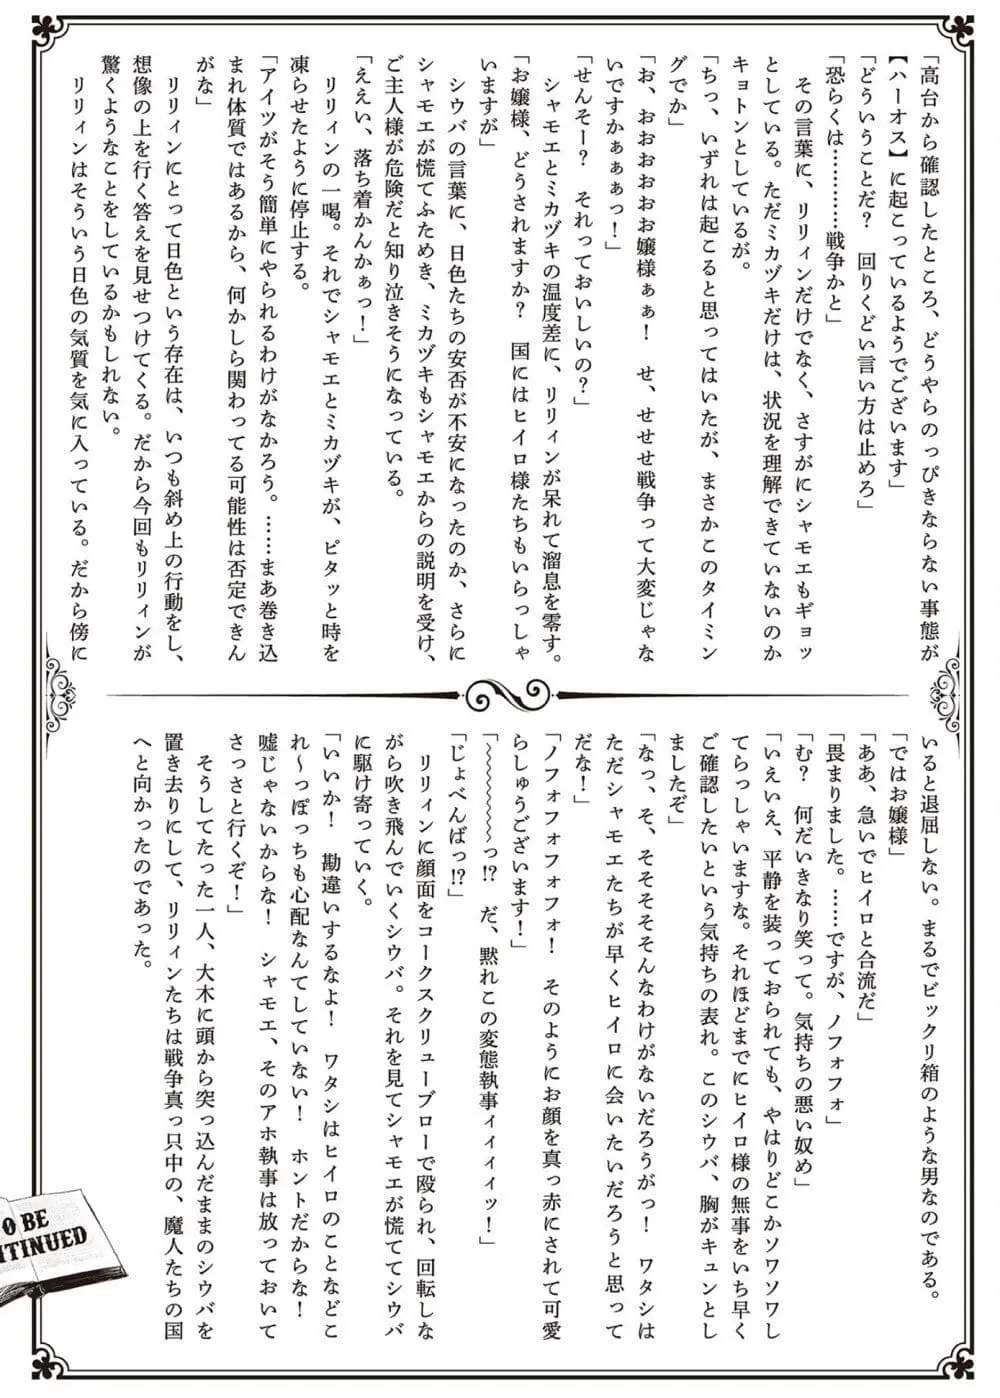 「高台から確認したところ、どうやらのっぴきならない事態が
【ハーオス】に起こっているようでございます」
「どういうことだ？　回りくどい言い方は止めろ」
「恐らくは…………戦争かと」
　その言葉に、リリィンだけでなく、さすがにシャモエもギョッ
としている。ただミカヅキだけは、状況を理解できていないのか
キョトンとしているが。
「ちっ、いずれは起こると思ってはいたが、まさかこのタイミン
グでか」
「お、おおおおおお嬢様ぁぁ！　せ、せせせ戦争って大変じゃな
いですかぁぁぁっ！」
「せんそー？　それっておいしいの？」
　シャモエとミカヅキの温度差に、リリィンが呆れて溜息を零す。
「お嬢様、どうされますか？　国にはヒイロ様たちもいらっしゃ
いますが」
　シウバの言葉に、日色たちの安否が不安になったのか、さらに
シャモエが慌てふためき、ミカヅキもシャモエからの説明を受け、
ご主人様が危険だと知り泣きそうになっている。
「ええい、落ち着かんかぁっ！」
　リリィンの一喝。それでシャモエとミカヅキが、ピタッと時を
凍らせたように停止する。
「アイツがそう簡単にやられるわけがなかろう。……まあ巻き込
まれ体質ではあるから、何かしら関わってる可能性は否定できん
がな」
　リリィンにとって日色という存在は、いつも斜め上の行動をし、
想像の上を行く答えを見せつけてくる。だから今回もリリィンが
驚くようなことをしているかもしれない。
　リリィンはそういう日色の気質を気に入っている。だから傍に
いると退屈しない。まるでビックリ箱のような男なのである。
「ではお嬢様」
「ああ、急いでヒイロと合流だ」
「畏まりました。……ですが、ノフォフォ」
「む？　何だいきなり笑って。気持ちの悪い奴め」
「いえいえ、平静を装っておられても、やはりどこかソワソワし
てらっしゃいますな。それほどまでにヒイロ様の無事をいち早く
ご確認したいという気持ちの表れ。このシウバ、胸がキュンとし
ましたぞ」
「なっ、そ、そそそそんなわけがないだろうがっ！　ワタシは
ただシャモエたちが早くヒイロに会いたいだろうと思って
だな！」
「ノフォフォフォフォ！　そのようにお顔を真っ赤にされて可愛
らしゅうございます！」
「～～～～～～っ!?　だ、黙れこの変態執事ィィィィッ！」
「じょべんばっ!?」
　リリィンに顔面をコークスクリューブローで殴られ、回転しな
がら吹き飛んでいくシウバ。それを見てシャモエが慌ててシウバ
に駆け寄っていく。
「いいか！　勘違いするなよ！　ワタシはヒイロのことなどこ
れ～っぽっちも心配なんてしていない！　ホントだからな！
嘘じゃないからな！　シャモエ、そのアホ執事は放っておいて
さっさと行くぞ！」
　そうしてたった一人、大木に頭から突っ込んだままのシウバを
置き去りにして、リリィンたちは戦争真っ只中の、魔人たちの国
へと向かったのであった。
O BE
TINUED